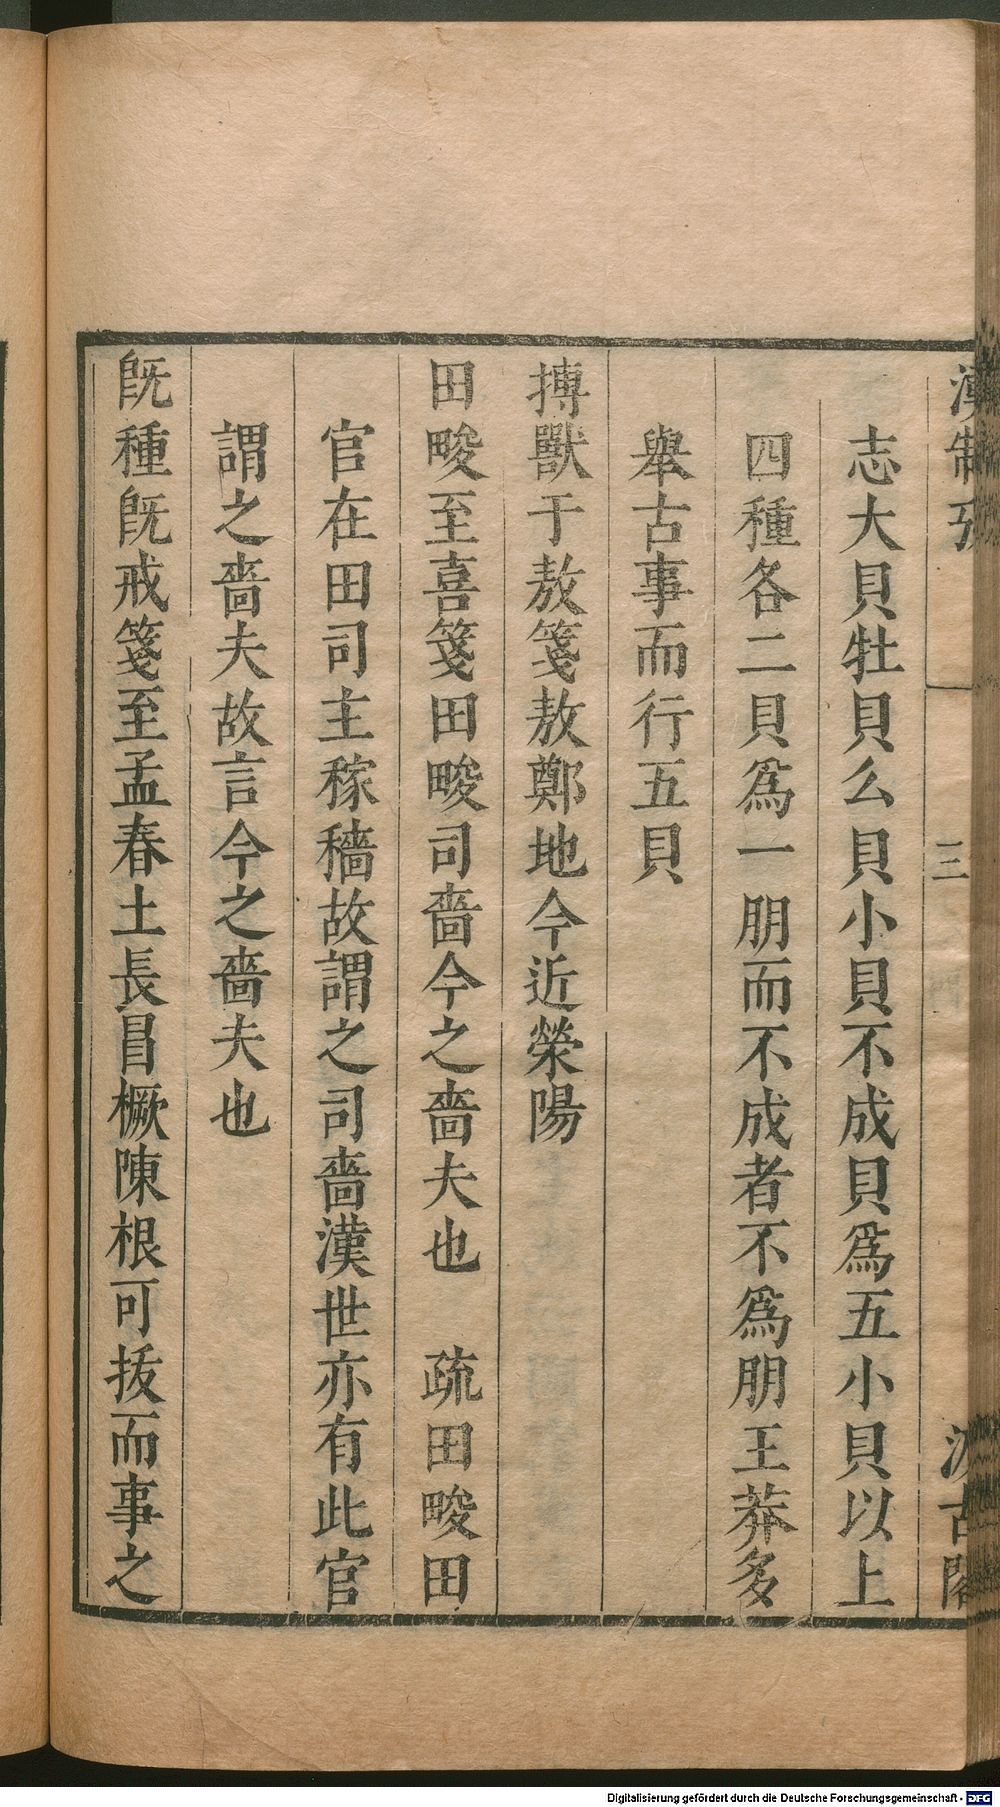 漢制攷
三
汲古閣
志大貝牡貝么貝小貝不成貝爲五小貝以上
四種各二貝爲一朋而不成者不爲朋王莽多
舉古事而行五貝
搏獸于敖箋敖鄭地今近滎陽
田畯至喜箋田畯司嗇今之嗇夫也　疏田畯田
官在田司主稼穡故謂之司嗇漢世亦有此官
謂之嗇夫故言今之嗇夫也
旣種旣戒箋至孟春土長冒橛陳根可拔而事之
Digitalisierung gefördert durch die Deutsche Forschungsgemeinschaft - DFG